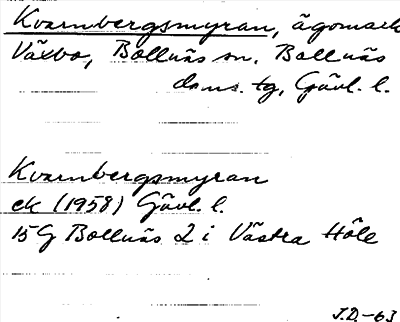 Kvarnbergsmyran, ägomark
Växbo, Bollnäs sn. Bollnäs
doms. tg, Gävl. l.
Kvarnbergsmyran
ek (1958) Gävl. l.
15G Bollnäs 2 i Västra Höle
J.D.-63